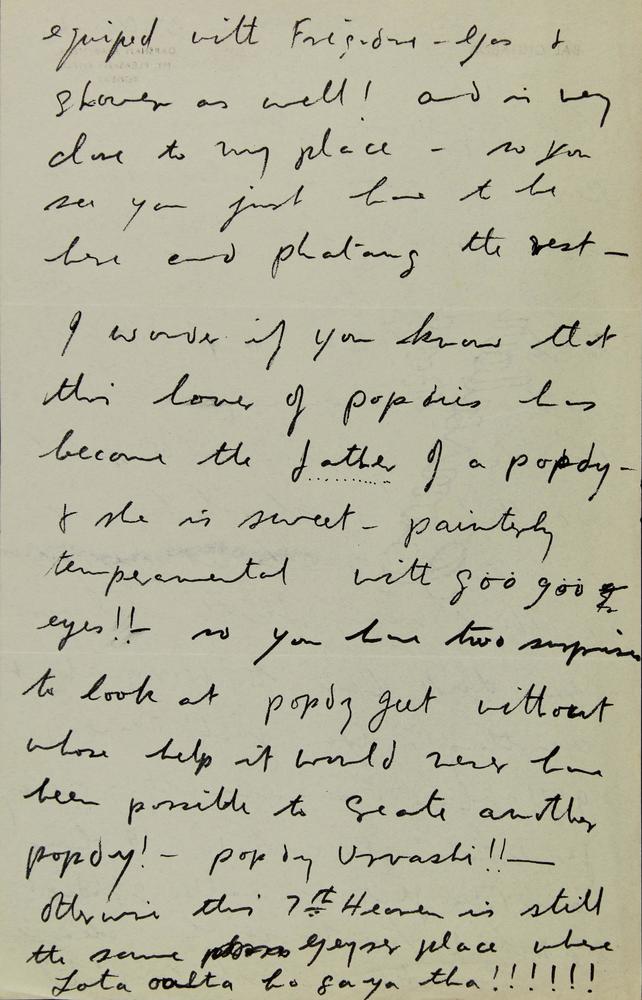 equiped with Frigidre - Gas &
shower as well! and is very
close to my place - so you
see you just have to be
here and phatang the rest -
I wonder if you know that
this lover of popdies has
become the father of a popdy -
& she is sweet - painterly
temperamental with göö göö
eyes!! - so you have two surprises
to look at popdy geet without
whose help it would never have
been possible to create another
popdy! - popdy Urvashi!! -
Otherwise this 7th Heaven is still
the same geyser place where
Lota oolta ho gaya tha!!!!!!